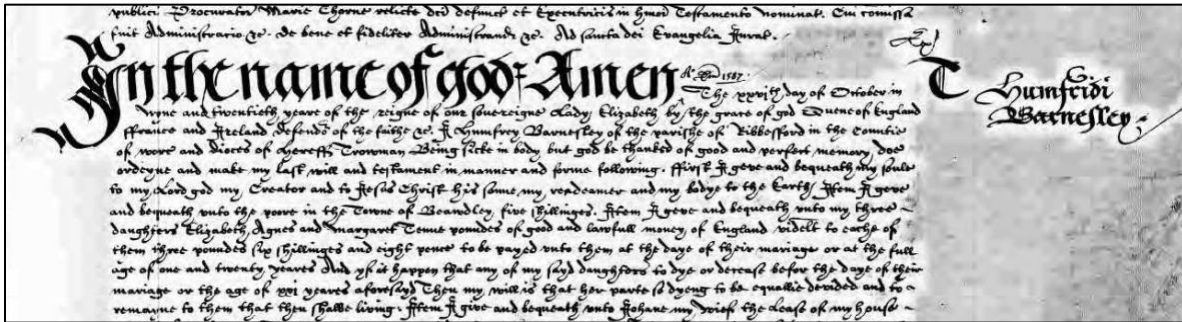 publici Procurator Marie Thorne relicte dci defunct et Executricis in hmoi Testamento nominat. Cui comissa
fuit Administracio &c. De bene et fideliter Administrand &c. Ad sancta dei Evangelia Jurat.
In the name of god: Amen Ao Dni 1587. The xxvith day of October in
T Humfridi Barnesley.
nyne and twentieth yeare of the reigne of our sovereigne Lady Elizabeth by the grace of god Quene of England
ffraunce and Ireland defendor of the faithe &c. I Humfrey Barnesley of the parishe of Ribbesford in the Countie
of worc and dioces of hereff Trowman Being sicke in body but god be thanked of good and perfect memory doe
ordeyne and make my last will and testament in manner and forme following. ffirst I geve and bequeath my soule
to my Lord god my Creator and to Jesus Christ his sonne my redeamer and my bodye to the Earth Item I geve
and bequeath unto the poore in the Towne of Beawdley five shillinges. Item I geve and bequeath unto my three
daughters Elizabeth, Agnes and margaret Tenne poundes of good and lawfull money of England videlt to eache of
them three poundes six shillinges and eight pence to be payed unto them at the daye of their mariage or at the full
age of one and twenty yeares And yf it happen that any of my sayd daughters to dye or decease before the daye of their
mariage or the age of xxi yeares aforesayd Then my will is that her parte so dyeng to be equallie devided and to
remayne to them that then shalbe living. Item I give and bequeath unto Johane my wief the Lease of my house